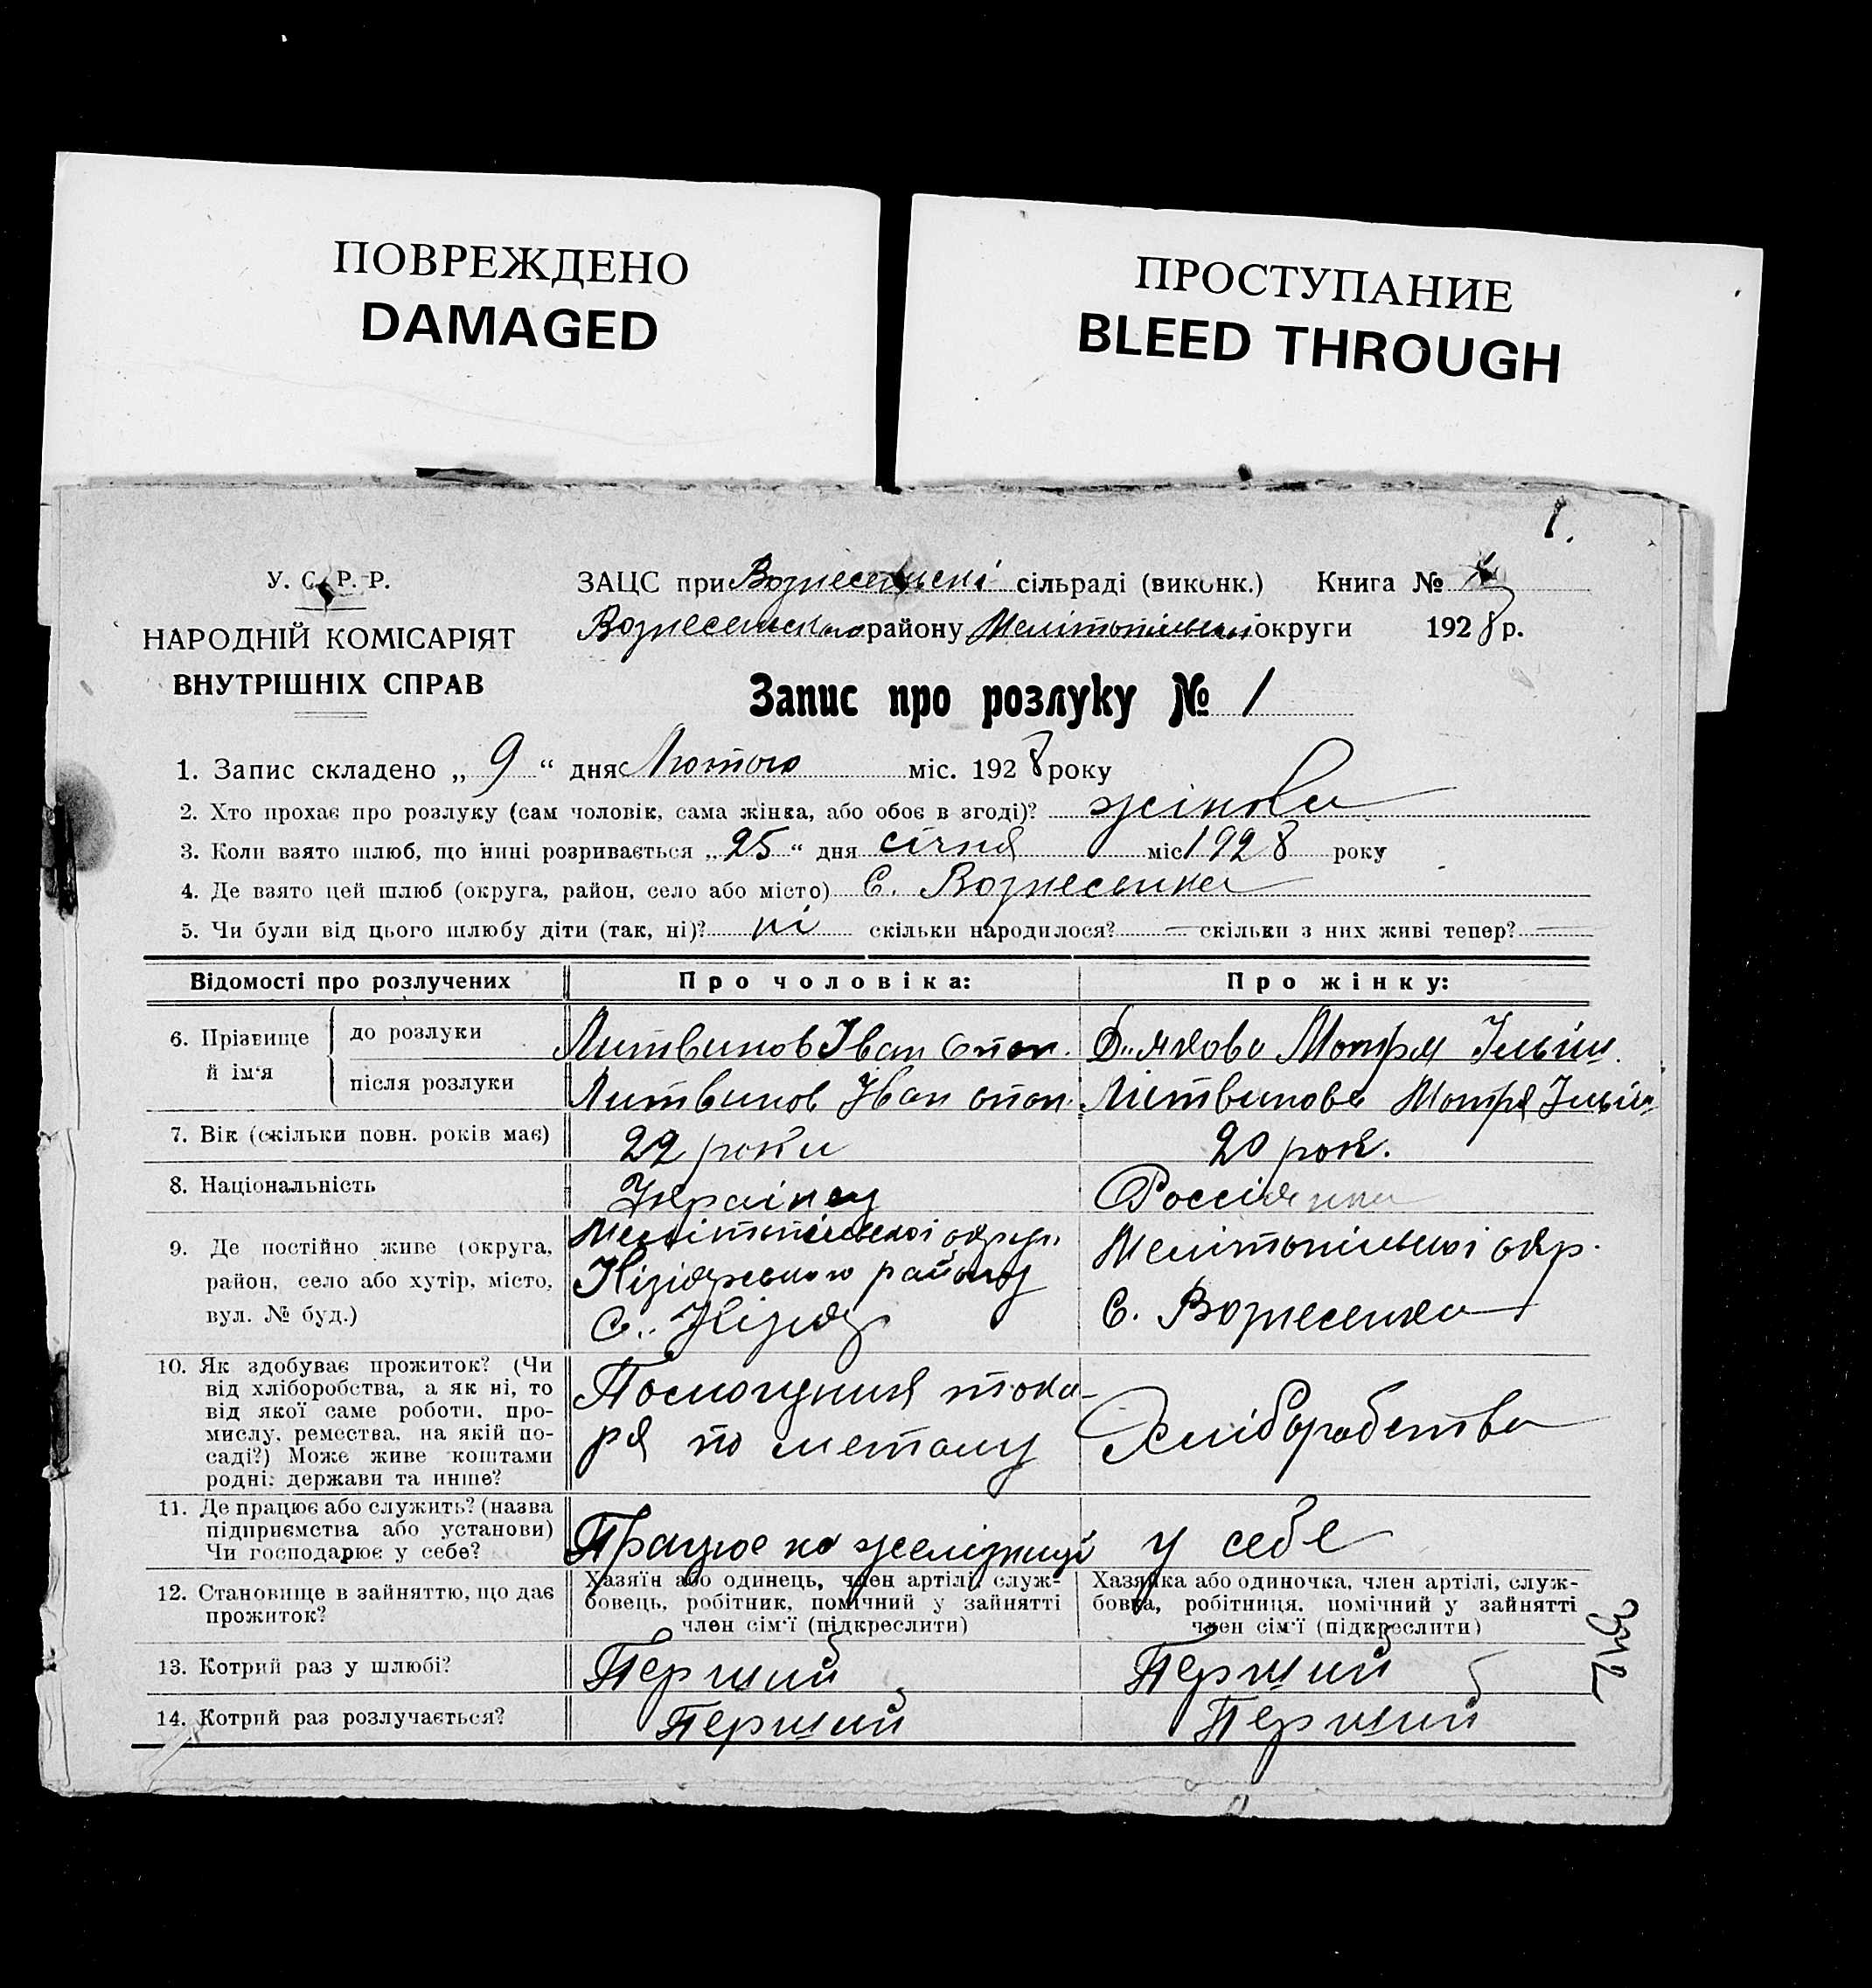 ПОВРЕЖДЕНО
DAMAGED
ПРОСТУПАНИЕ
BLEED THROUGH
1.
У. С. Р. Р.
НАРОДНІЙ КОМІСАРІЯТ
ВНУТРІШНІХ СПРАВ
ЗАЦС при Вознесенській сільраді (виконк.) Книга №
Вознесенського району Мелітопільської округи 1928 р.
Запис про розлуку № 1
1. Запис складено „ 9 “ дня Лютого міс. 1928 року
2. Хто прохає про розлуку (сам чоловік, сама жінка, або обоє в згоді)? жінова
3. Коли взято шлюб, що нині розривається „ 25 “ дня січня міс 1928 року
4. Де взято цей шлюб (округа, район, село або місто) С. Вознесенка
5. Чи були від цього шлюбу діти (так, ні)? ні скільки народилося? — скільки з них живі тепер? —
Відомості про розлучених Про чоловіка: Про жінку:
6. Прізвище й ім‘я
до розлуки Литвинов Іван Степ. Д..якова Мотря Ільїн.
після розлуки Литвинов Іван степ. Літвинова Мотря Ільїн
7. Вік (скільки повн. років має) 22 роки 20 рок.
8. Національність Українец Россіянка
9. Де постійно живе (округа,
район, село або хутір, місто,
вул. № буд.)
Мелітопільської округи
Нізіянського району
С. Нізяни
Мелітопільскоі окр.
С. Вознесенка
10. Як здобуває прожиток? (Чи
від хліборобства, а як ні, то
від якої саме роботи, про-
мислу, ремества, на якій по-
саді?) Може живе коштами
родні: держави та инше?
Помощник тока-
ря по металу
Хліборобство
11. Де працює або служить? (назва
підприємства або установи)
Чи господарює у себе?
Працює на желізниці
у себе
12. Становище в зайняттю, що дає
прожиток?
Хазяїн або одинець, член артілі, служ-
бовець, робітник, помічний у зайнятті
член сім‘ї (підкреслити)
Хазяйка або одиночка, член артілі, служ-
бовка, робітниця, помічний у зайнятті
член сім‘ї (підкреслити)
13. Котрий раз у шлюбі? Перший Перший
14. Котрий раз розлучається? Перший Перший